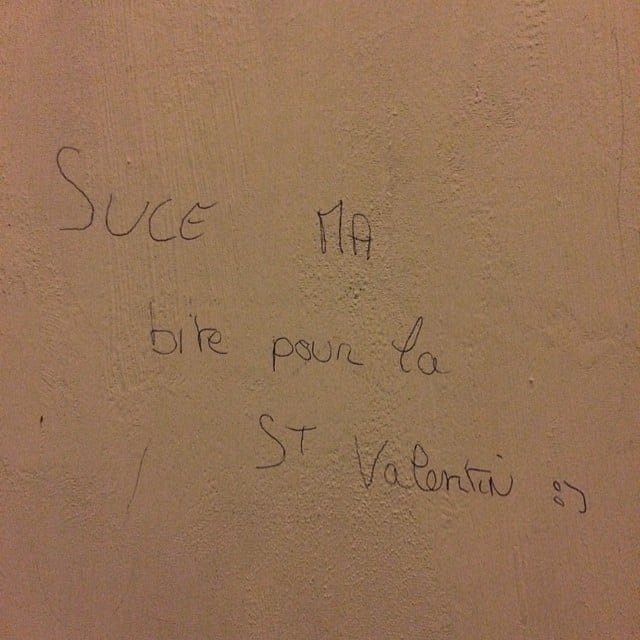 SUCE MA
bite pour la
ST Valentin :)